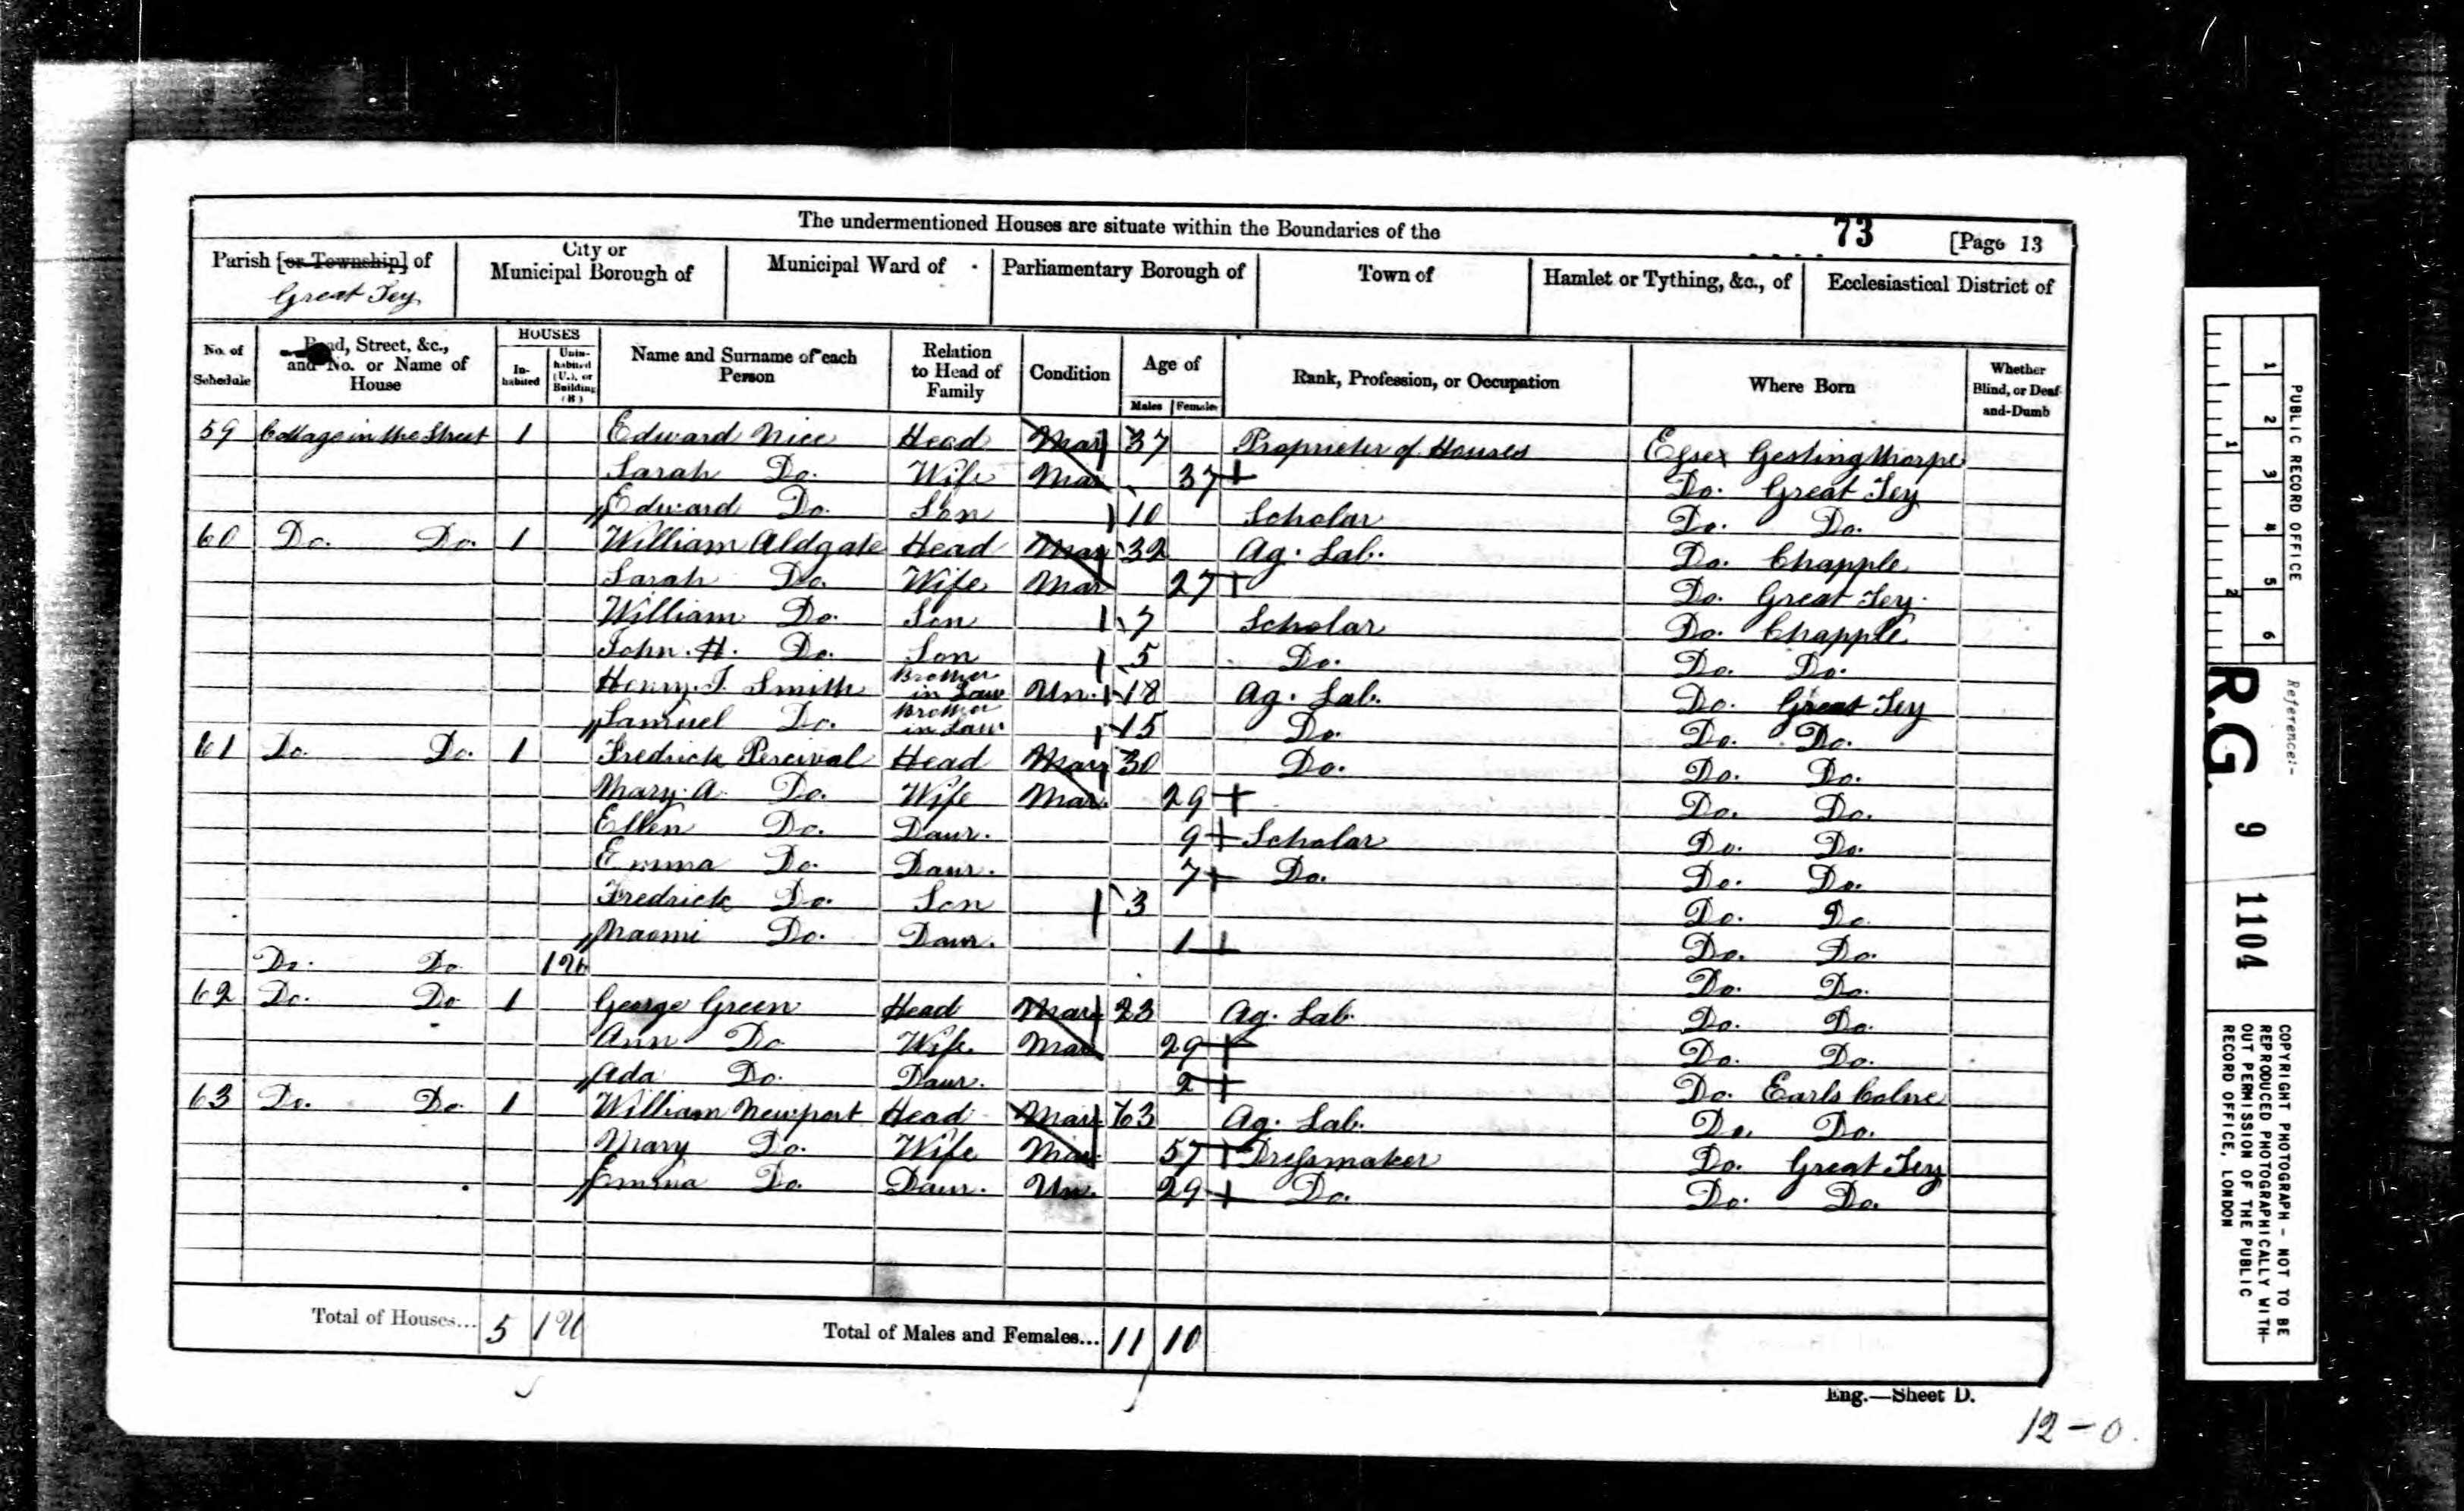 The undermentioned Houses are situate within the Boundaries of the 73 [Page 13
Parish [or Township] of Great Tey
City or Municipal Borough of
Municipal Ward of
Parliamentary Borough of
Town of
Hamlet or Tything, &c., of
Ecclesiastical District of
No. of Schedule
Road, Street, &c., and No. or Name of House
HOUSES
Inhabited
Uninhabited (U.), or Building (B)
Name and Surname of each Person
Relation to Head of Family
Condition
Age of
Males Females
Rank, Profession, or Occupation
Where Born
Whether Blind, or Deaf-and-Dumb
59 Cottage in the Street 1 Edward Nice Head Mar 37 Proprietor of Houses Essex Gestingthorpe
Sarah Do. Wife Mar 37 Do. Great Tey
Edward Do. Son 10 Scholar Do. Do.
60 Do. Do. 1 William Aldgate Head Mar 32 Ag. Lab. Do. Chapple
Sarah Do. Wife Mar 27 Do. Great Tey
William Do. Son 7 Scholar Do. Chapple
John. H. Do. Son 5 Do. Do. Do.
Henry. T. Smith Brother in Law Un. 18 Ag. Lab. Do. Great Tey
Samuel Do. Brother in Law 15 Do. Do. Do.
61 Do. Do. 1 Fredrick Percival Head Mar 30 Do. Do. Do.
Mary. A. Do. Wife Mar. 29 Do. Do.
Ellen Do. Daur. 9 Scholar Do. Do.
Emma Do. Daur. 7 Do. Do. Do.
Fredrick Do. Son 3 Do. Do.
Naomi Do. Daur. 1 Do. Do.
Do. Do. 1 U Do. Do.
62 Do. Do 1 George Green Head Mar 23 Ag. Lab. Do. Do.
Ann Do Wife. Mar 29 Do. Do.
Ada Do. Daur. 2 Do. Earls Colne
63 Do. Do. 1 William Newport Head Mar 63 Ag. Lab. Do. Do.
Mary Do. Wife Mar 57 Dressmaker Do. Great Tey
Emma Do. Daur. Un. 29 Do. Do. Do.
Total of Houses... 5 1 U Total of Males and Females... 11 10
Eng.—Sheet D.
12 - 0
1 2 3 4 5 6
1 2
PUBLIC RECORD OFFICE
Reference:-
R.G. 9 1104
COPYRIGHT PHOTOGRAPH - NOT TO BE REPRODUCED PHOTOGRAPHICALLY WITH-
OUT PERMISSION OF THE PUBLIC
RECORD OFFICE, LONDON